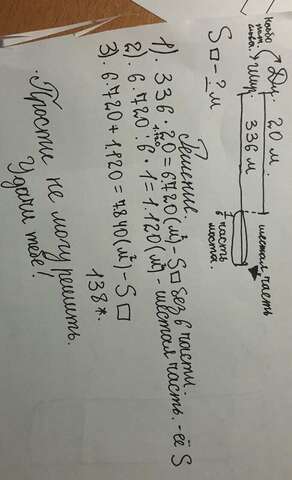 Дл. 20 м.
Шир. 336 м
шестая часть
1/6 часть
S □ - ? м
Решение.
1). 336 · 20 = 6.720 (м²) - S □ без 6 части.
2). 6.720 : 6 · 1 = 1.120 (м²) - шестая часть. - её S
3). 6.720 + 1.120 = 7.840 (м²) - S □
138*.
Прости не могу решить.
Удачи тебе!